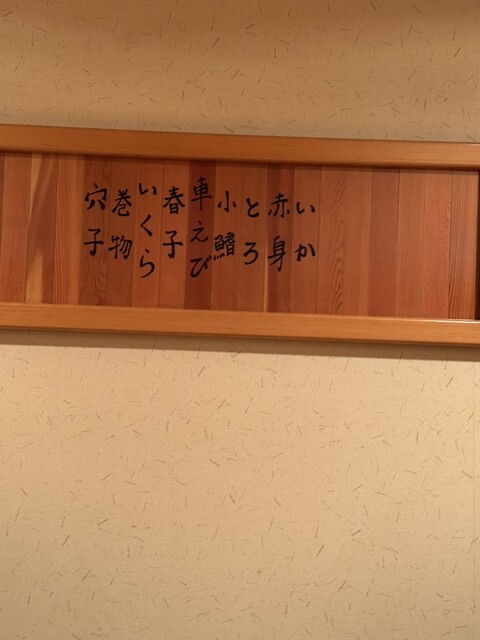 いか
赤身
とろ
小鰭
車えび
春子
いくら
巻物
穴子